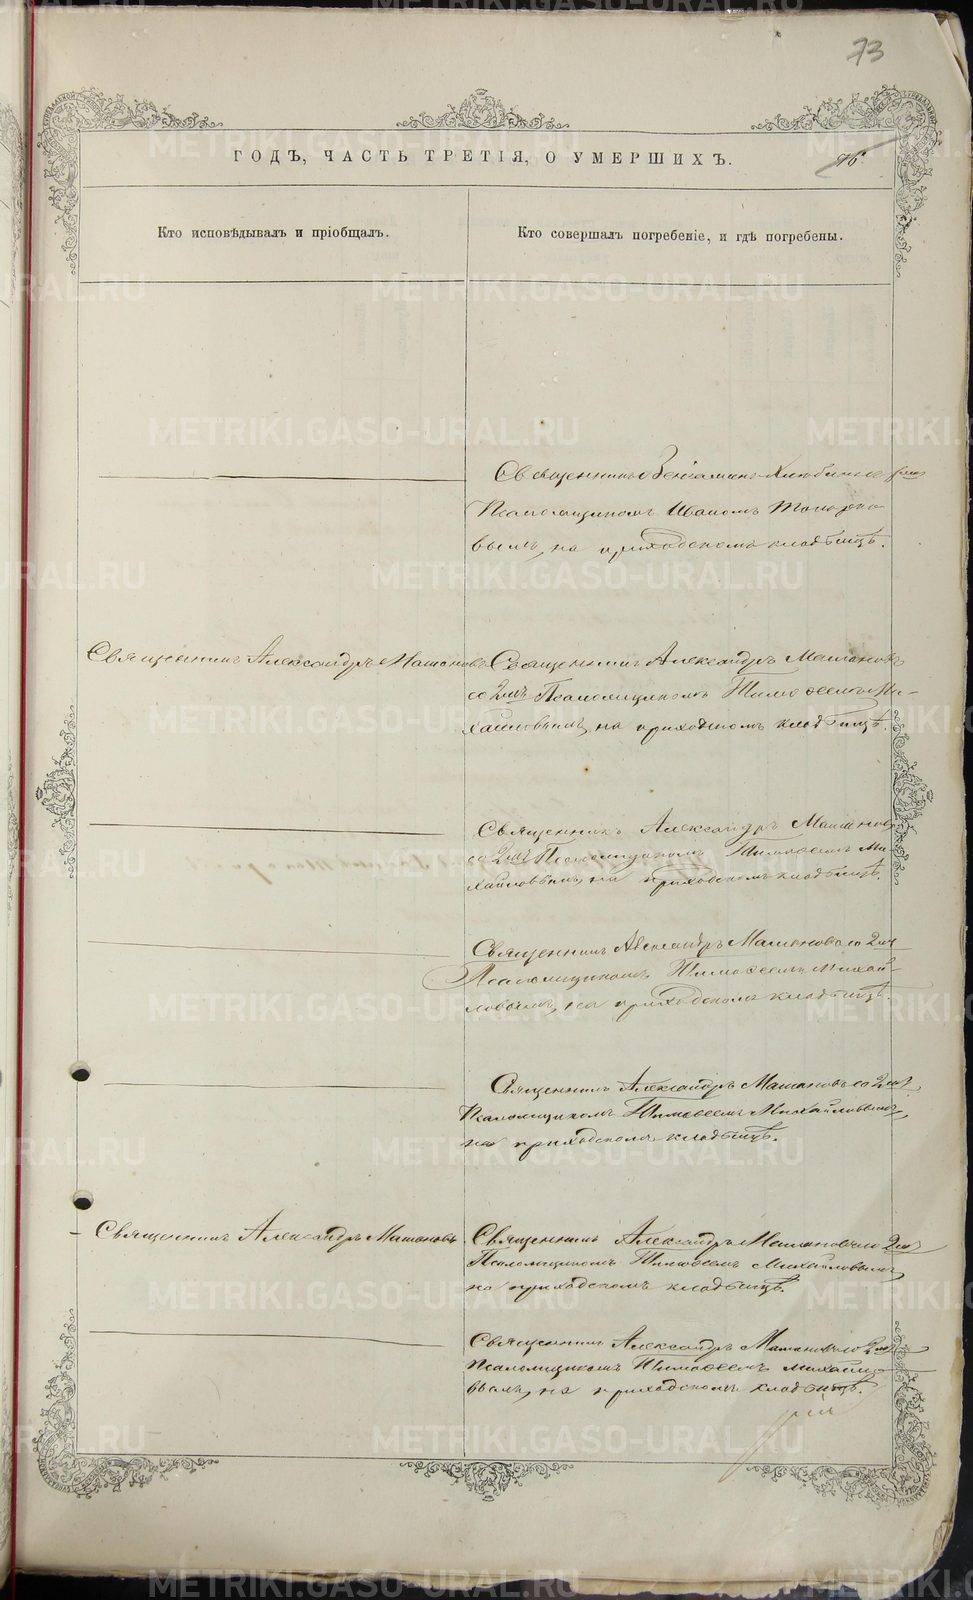 73
ГОДЪ, ЧАСТЬ ТРЕТІЯ, О УМЕРШИХЪ.
76
Кто исповѣдывалъ и пріобщалъ.
Кто совершалъ погребеніе, и гдѣ погребены.
Псаломщикомъ Иваномъ
вымъ, на приходскомъ кладбищѣ.
Священникъ Александръ Машановъ
Священникъ Александръ Машановъ
со 2мъ Псаломщикомъ Тимоѳеемъ Ми-
хайловымъ, на приходскомъ кладбищѣ.
Священникъ Александръ Машановъ
со 2мъ Псаломщикомъ Тимоѳеемъ Ми-
хайловымъ, на приходскомъ кладбищѣ.
Священникъ Александръ Машановъ со 2мъ
Псаломщикомъ Тимоѳеемъ Михай-
ловымъ, на приходскомъ кладбищѣ.
Священникъ Александръ Машановъ со 2мъ
Псаломщикомъ Тимоѳеемъ Михайловымъ,
на приходскомъ кладбищѣ.
Священникъ Александръ Машановъ
Священникъ Александръ Машановъ со 2мъ
Псаломщикомъ Тимоѳеемъ Михайловымъ
на приходскомъ кладбищѣ.
Священникъ Александръ Машановъ со 2мъ
Псаломщикомъ Тимоѳеемъ Михайло-
вымъ, на приходскомъ кладбищѣ.
METRIKI.GASO-URAL.RU